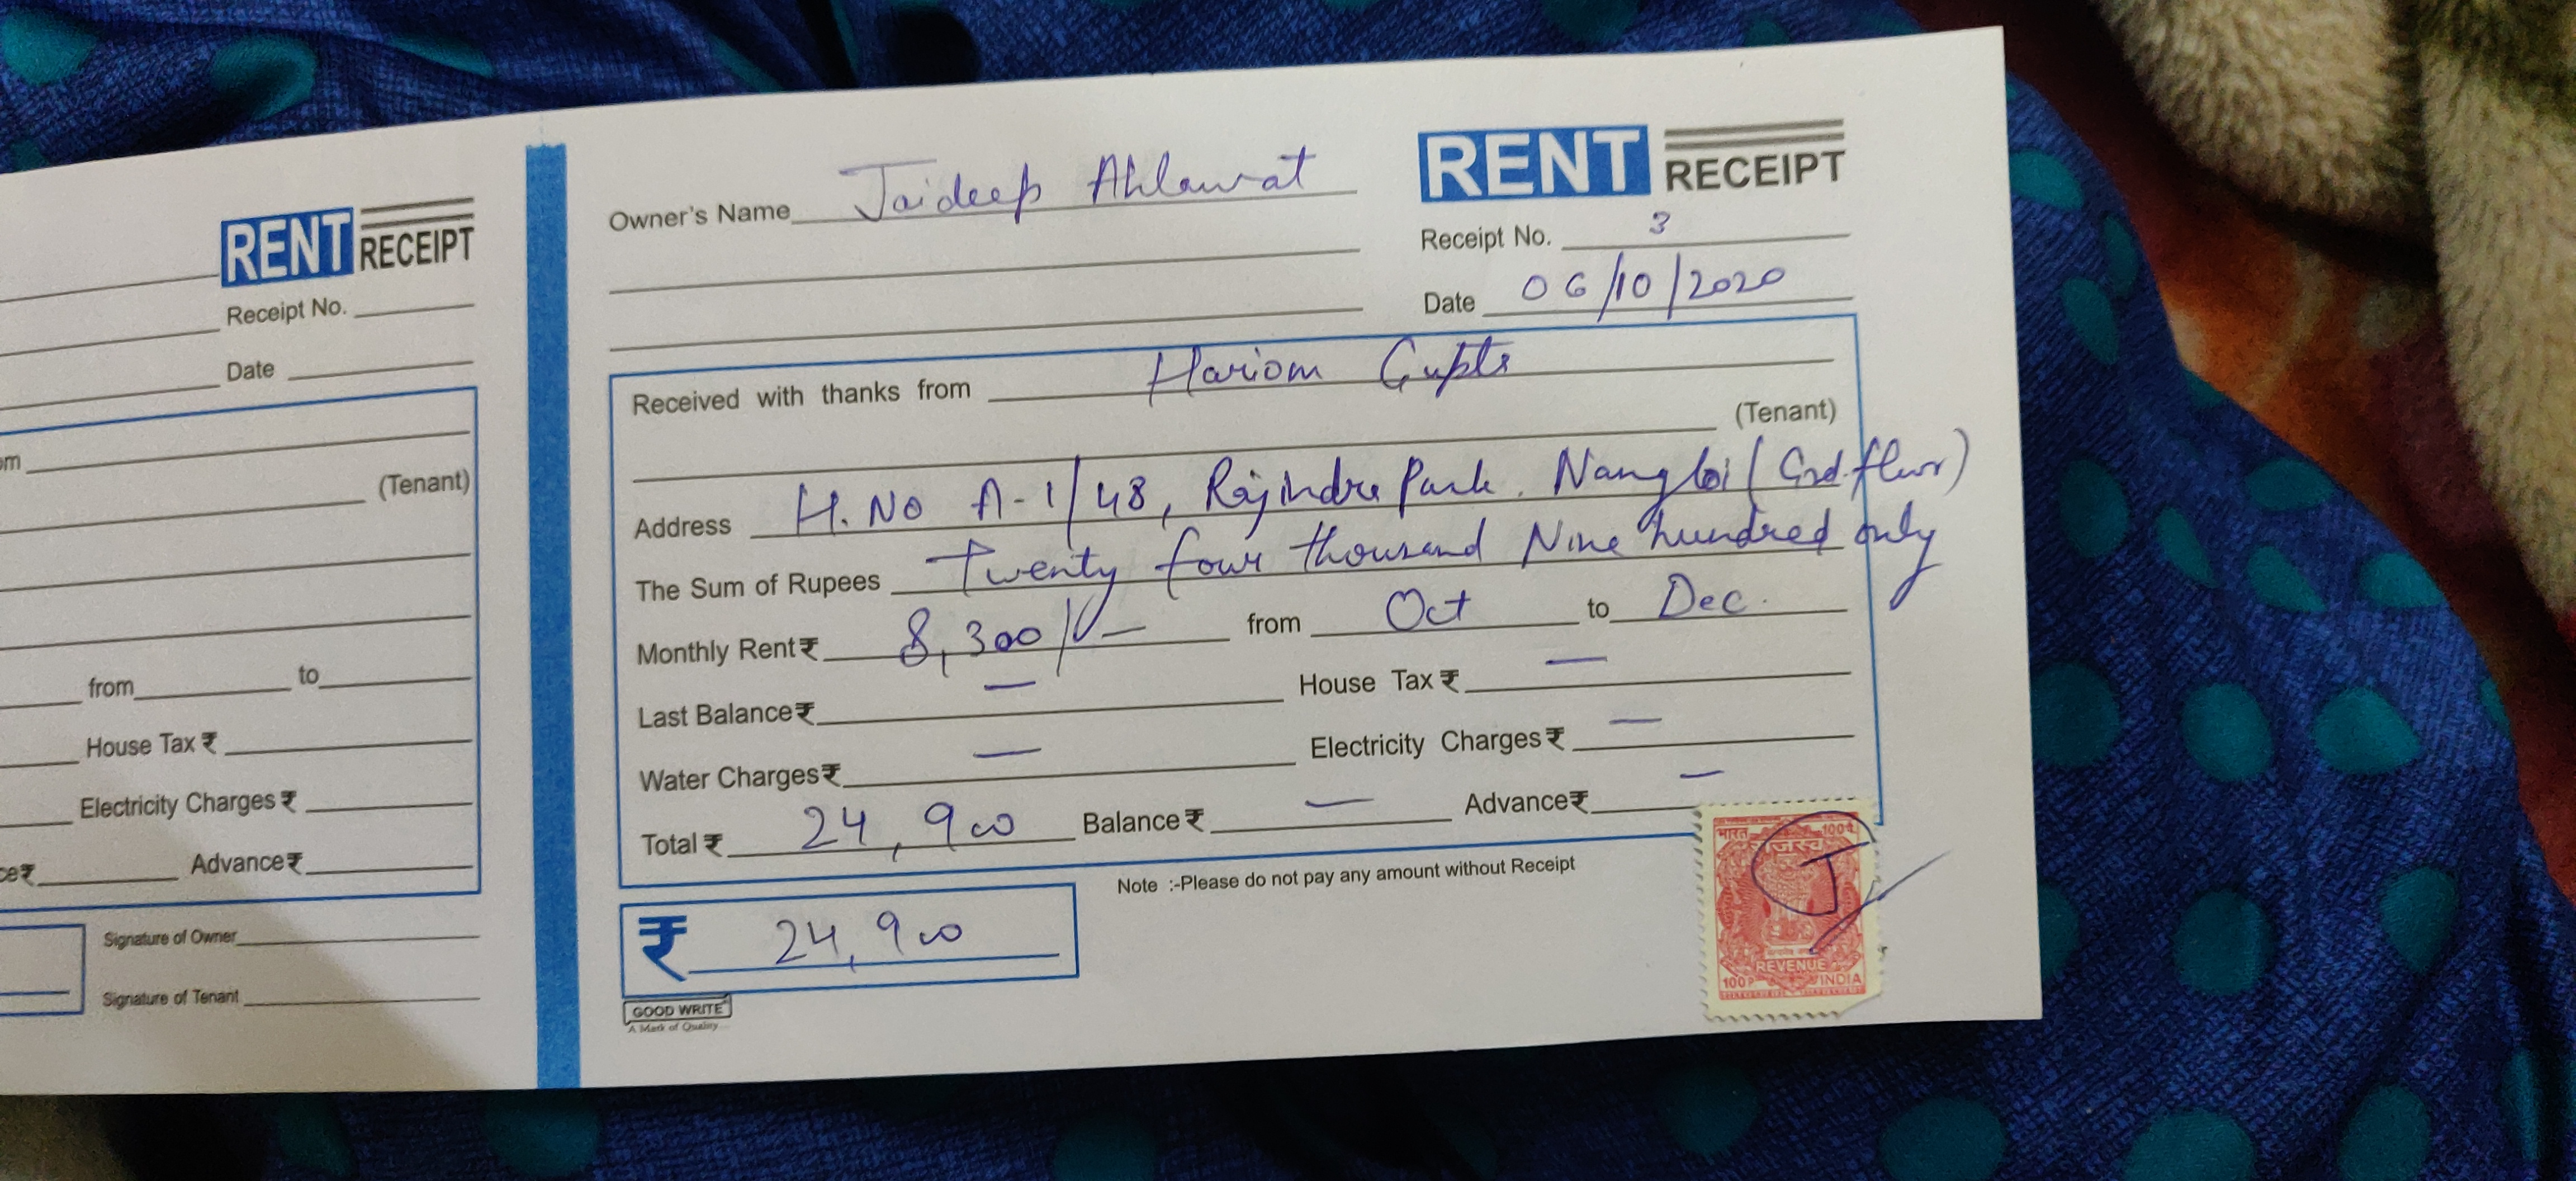 RENT RECEIPT
Receipt No.
Date
om
(Tenant)
from to
House Tax₹
Electricity Charges₹
ce₹ Advance₹
Signature of Owner
Signature of Tenant
RENT RECEIPT
Owner's Name Jaideep Ahlawat
Receipt No. 3
Date 06/10/2020
Received with thanks from Hariom Gupta
(Tenant)
Address H.No A-1/48, Rajindra Park, Nangloi (Grd. floor)
The Sum of Rupees Twenty four thousand Nine hundred only
Monthly Rent₹ 8,300/- from Oct to Dec.
Last Balance₹ — House Tax₹ —
Water Charges₹ — Electricity Charges₹ —
Total ₹ 24,900 Balance₹ — Advance₹ —
₹ 24,900
Note :-Please do not pay any amount without Receipt
GOOD WRITE
A Mark of Quality
भारत
100
REVENUE
INDIA
100